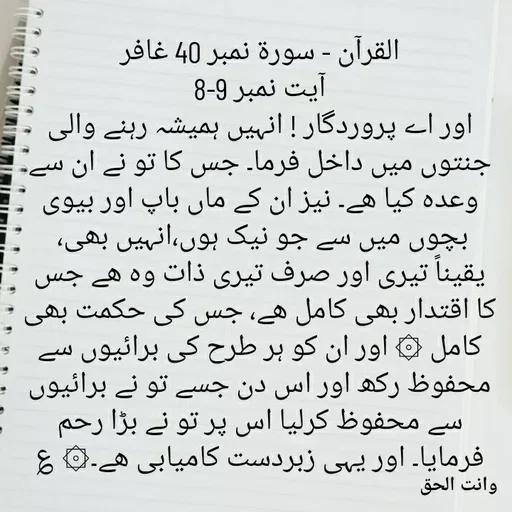 القرآن - سورۃ نمبر 40 غافر
آیت نمبر 9-8
اور اے پروردگار ! انہیں ہمیشہ رہنے والی
جنتوں میں داخل فرما۔ جس کا تو نے ان سے
وعدہ کیا ھے۔ نیز ان کے ماں باپ اور بیوی
بچوں میں سے جو نیک ہوں،انہیں بھی،
یقیناً تیری اور صرف تیری ذات وہ ھے جس
کا اقتدار بھی کامل ھے، جس کی حکمت بھی
کامل ۞ اور ان کو ہر طرح کی برائیوں سے
محفوظ رکھ اور اس دن جسے تو نے برائیوں
سے محفوظ کرلیا اس پر تو نے بڑا رحم
فرمایا۔ اور یہی زبردست کامیابی ھے۔۞ ؏
وانت الحق